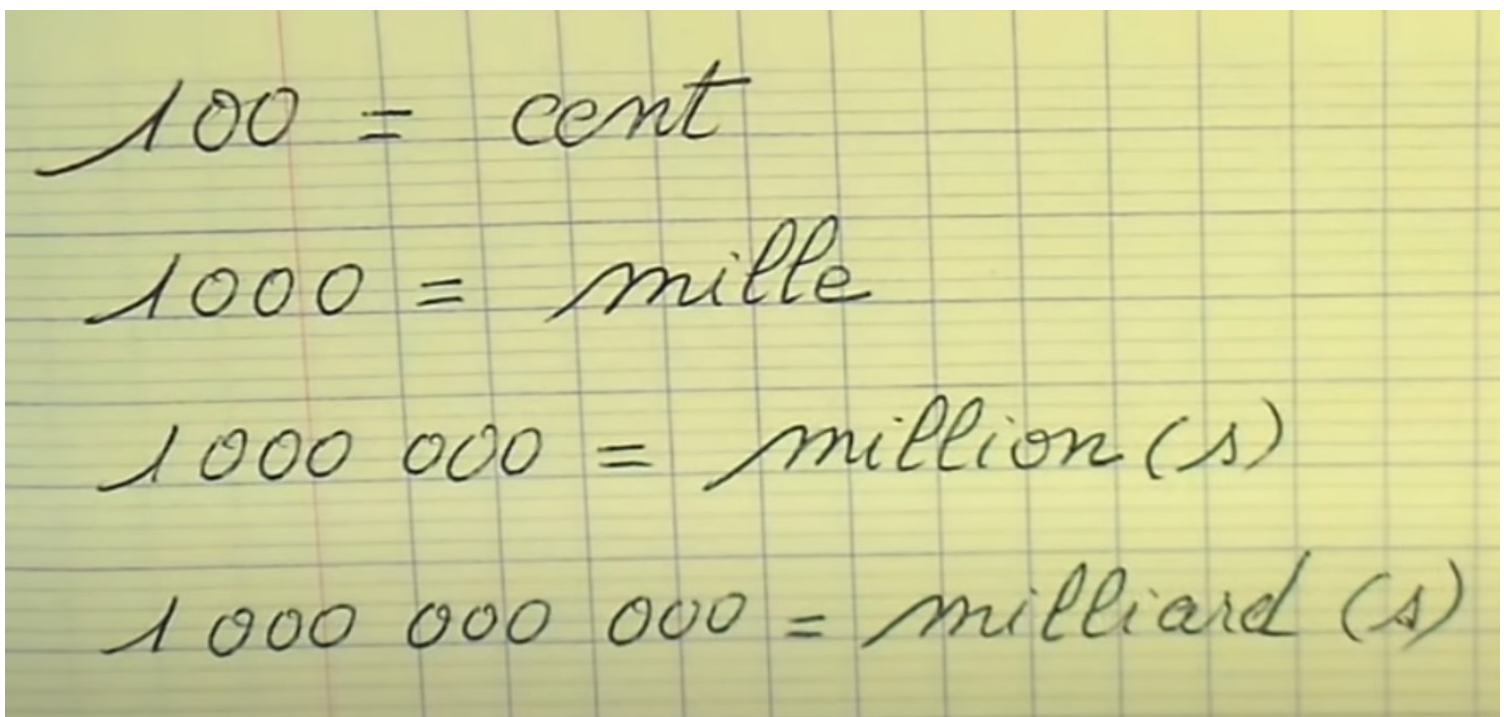 100 = cent
1000 = mille
1000 000 = million(s)
1 000 000 000 = milliard (s)